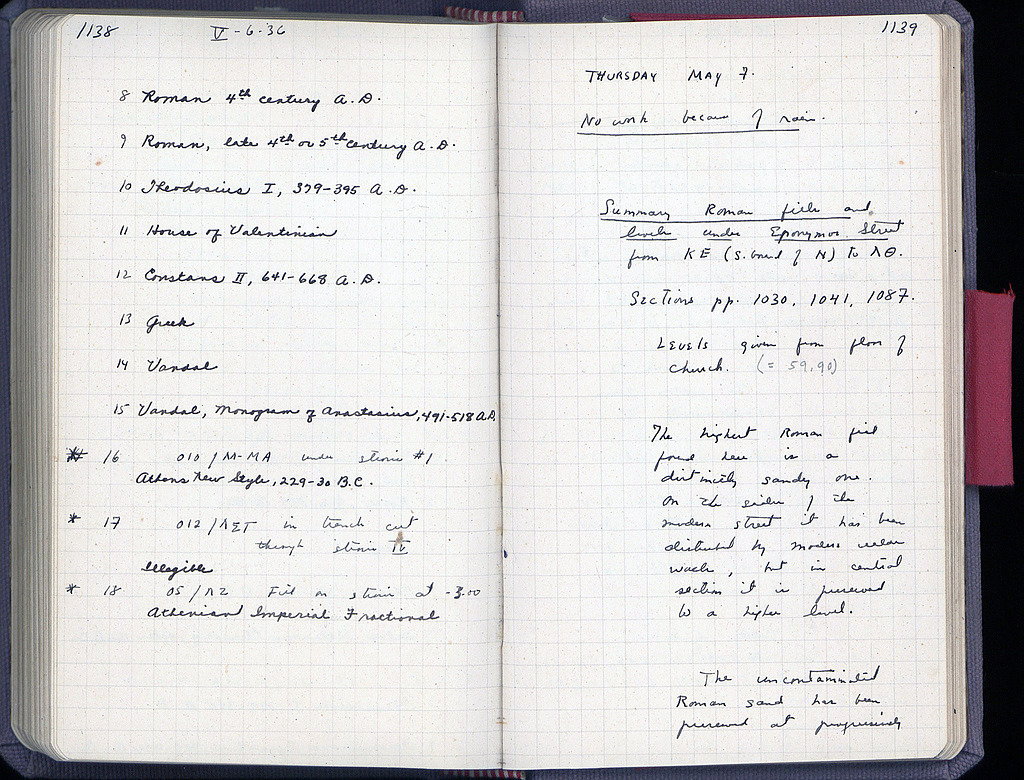 1138
V - 6.36
8 Roman 4th century A.D.
9 Roman, late 4th or 5th century A.D.
10 Theodosius I, 379-395 A.D.
11 House of Valentinian
12 Constans II, 641-668 A.D.
13 Greek
14 Vandal
15 Vandal, Monogram of Anastasius, 491-518 A.D.
* 16 010/M-MA under strosis #1.
Athens New Style, 229-30 B.C.
* 17 012/ΛΣΤ in trench cut
through strosis IV
Illegible
* 18 05/ΛΖ Fill on strosis at -3.00
Athenian Imperial Fractional
1139
THURSDAY MAY 7.
No work because of rain.
Summary Roman fills and
levels under Eponymos Street
from KE (S. bound of N) to ΛΘ.
Sections pp. 1030, 1041, 1087.
Levels given from floor of
church. (= 59.90)
The highest Roman fill
found here is a
distinctly sandy one.
On the sides of the
modern street it has been
disturbed by modern
walls, but in central
section it is preserved
to a higher level.
The uncontaminated
Roman sand has been
preserved at progressively